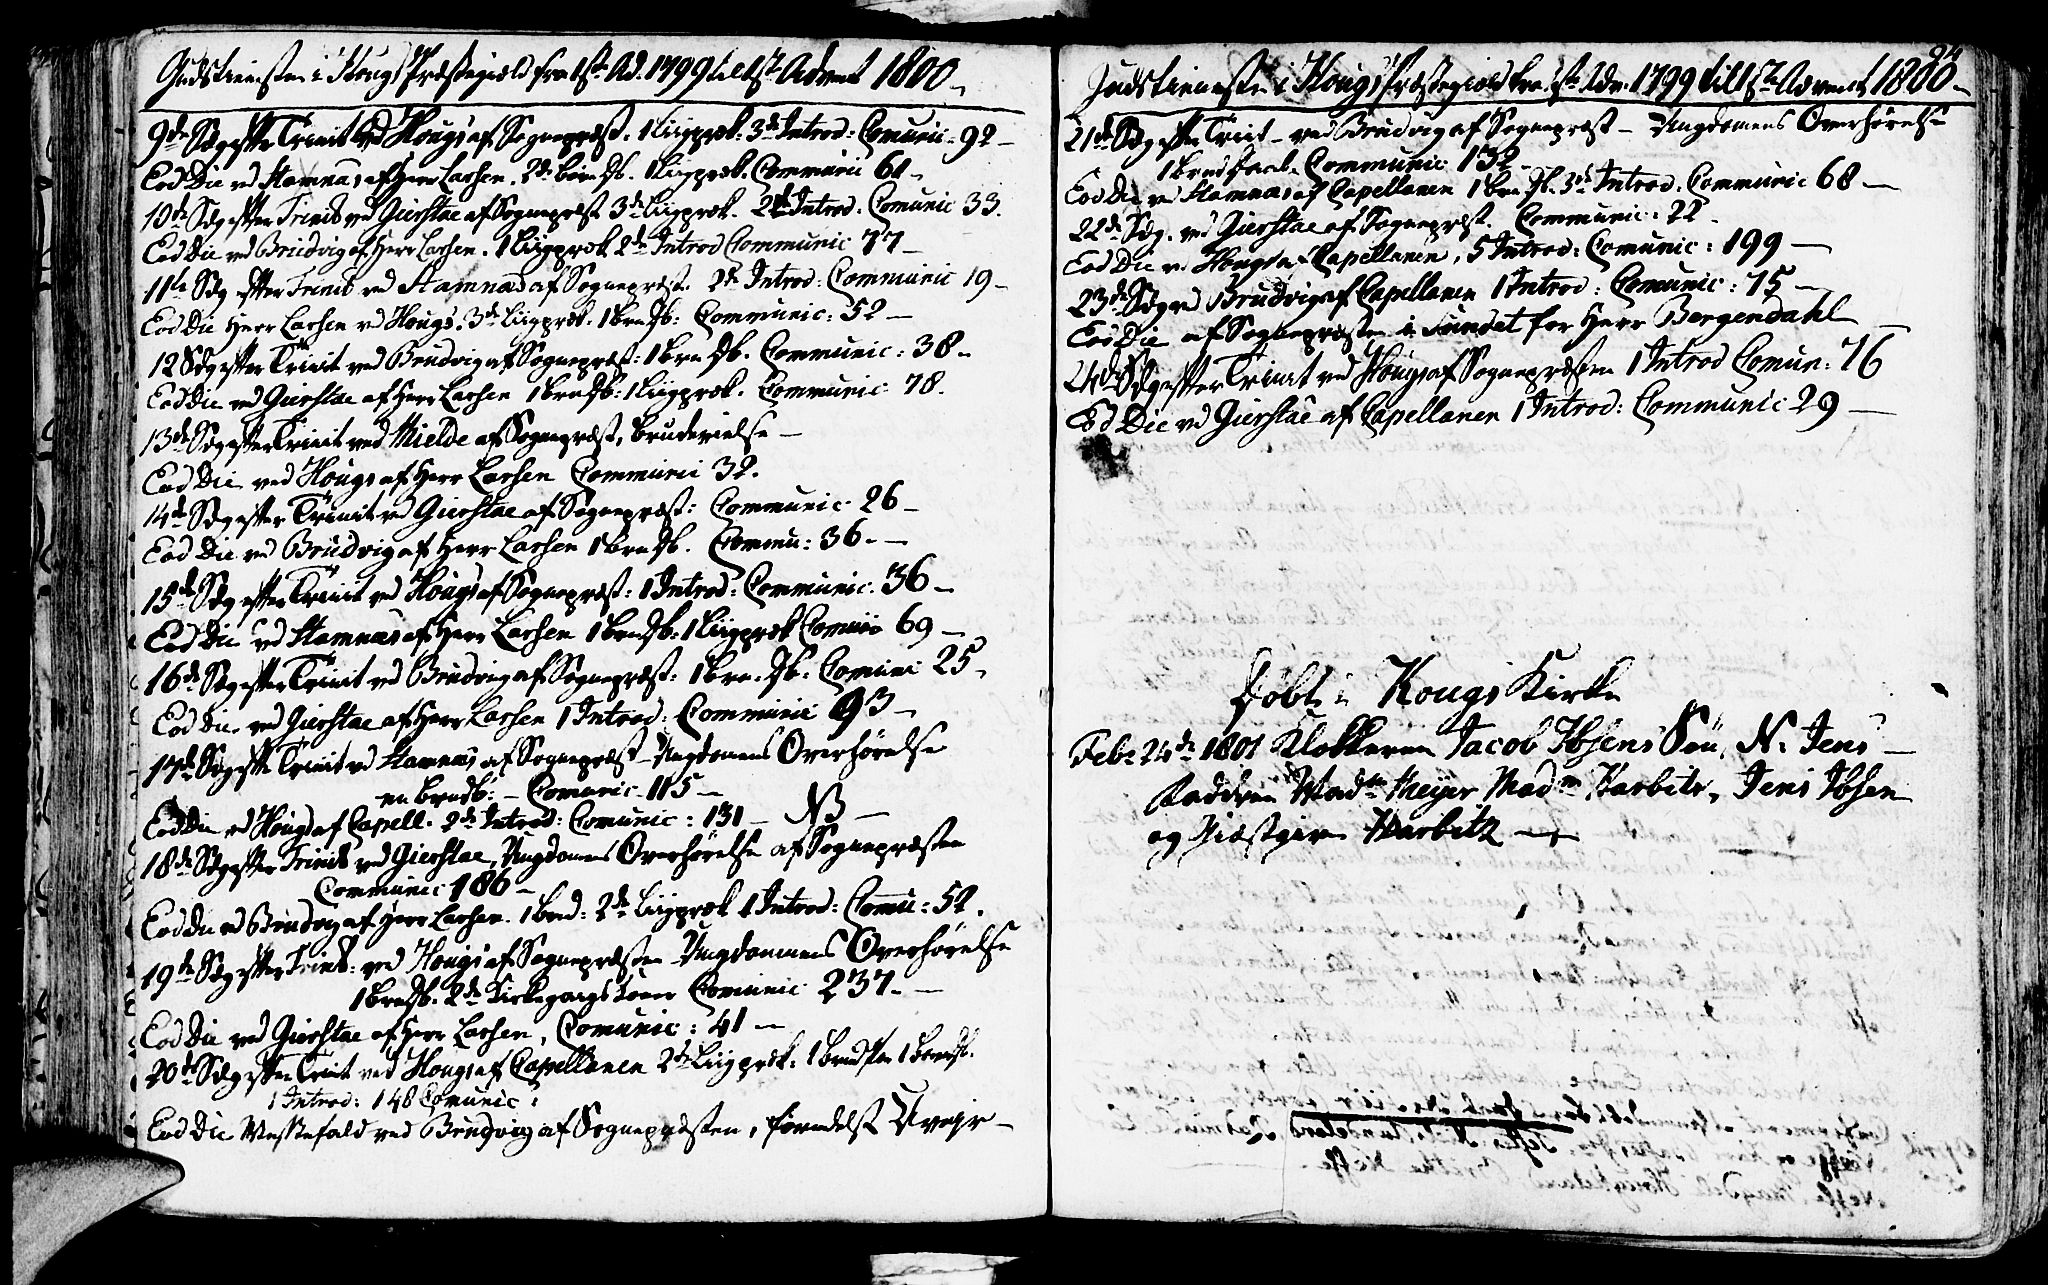 Gudstienesten i Hougs Præstegiæld fra 1ste Ad. 1799 til 1ste Advent 1800
9de Søg efter Trinit ved Hougs af Sognepræst. 1 Liigpræk: 3de Introd: Comunic: 92
Eod Die ved Stamnæs af Herr Larsen. 2de børn Db. 1 Liigpræk. Communic 61
10de Søg efter Trinit ved Gierstae af Sognepræst 3de Liigpræk. 2de Introd. Comunic 33.
Eod Die ved Brudvig af Herr Larsen. 1 Liigpræk 2de Introd Communic 77
11te Søg efter Trinit ved Stamnæs af Sognepræst. 2de Introd: Communic 19
Eod Die Herr Larsen ved Hougs. 3de Liigpræk. 1 brn Db: Communic: 52
12 Søg efter Trinit ved Brudvig af Sognepræst: 1 brn Db. Communic: 38
Eod Die ved Gierstae af Herr Larsen 1 brn Db: 1 Liigpræk. Communic: 78.
13de Søg efter Trinit ved Mielde af Sognepræst, brudevielse
Eod Die ved Hougs af Herr Larsen Communic 32.
14de Søg efter Trinit ved Gierstae af Sognepræst: Communic: 26
Eod Die ved Brudvig af Herr Larsen 1 brn Db. Commu: 36.
15de Søg efter Trinit ved Hougs af Sognepræst: 1 Introd: Communic. 36
Eod Die ved Stamnæs af Herr Larsen 1 brn Db: 1 Liigpræk Comunic 69
16de Søg efter Trinit ved Brudvig af Sognepræst: 1 brn. Db. Comunic 25
Eod Die ved Gierstae af Herr Larsen 1 Introd: Communic 93
17de Søg efter Trinit ved Stamnæs af Sognepræst Ungdomens Overhørelse
en brudb: Comunic 115
Eod Die ved Hougs af Capell. 2de Introd: Comunic: 131 NB
18de Søg efter Trinit ved Gierstae, Ungdomens Overhørelse af Sognepræsten
Communic 186
Eod Die ved Brudvig af Herr Larsen. 1 brud: 2de Liigpræk 1 Introd: Comu: 52.
19de Søg efter Trinit: ved Hougs af Sognepræsten Ungdommens Overhørelse
1 brn Db. 2de Kirkegangs koner Comunic 237.
Eod Die ved Gierstae af Herr Larsen, Comunic: 41
20de Søg efter Trinit ved Hougs af Capellanen 2de Liigpræk: 1 brudpar 1 brn Db.
1 Introd: 148 Comunic:
Eod Die Messefald ved Brudvig af Sognepræsten, formedelst Uvejr
94
Gudstieneste i Hougs Præstegiæld fra 1ste Adv. 1799 till 1ste Advent 1800
21de Søg efter Trinit ved Brudvig af Sognepræst Ungdomens Overhørelse
1 brud Communic: 132
Eod Die ved Stamnæs af Capellanen 1 brn Db. 3de Introd: Communic 68
22de Søg. ved Gierstae af Sognepræst. Communic: 22
Eod Die v. Hougs af Capellanen, 5 Introd: Comunic: 199
23de Søg ved Brudvig af Capellanen 1 Introd: Comunic: 75
Eod Die af Sognepræsten i Sundet for Herr Bergendahl
24de Søg efter Trinit ved Hougs af Sognepræsten 1 Introd Comun: 76
Eod Die ved Gierstae af Capellanen 1 Introd: Communic 29
Døbt i Hougs Kirke
Feb: 24de 1801 Klokkeren Jacob Ibsens Søn, N. Jens
Faddere Madme Meyer Madme Harbitz, Jens Ibsen
og Giæstgiver Harbitz